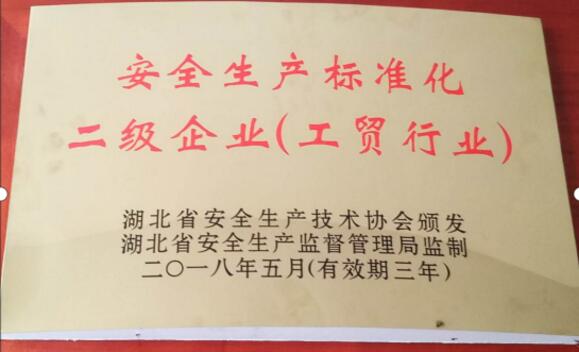 安全生产标准化
二级企业(工贸行业)
湖北省安全生产技术协会颁发
湖北省安全生产监督管理局监制
二〇一八年五月(有效期三年)